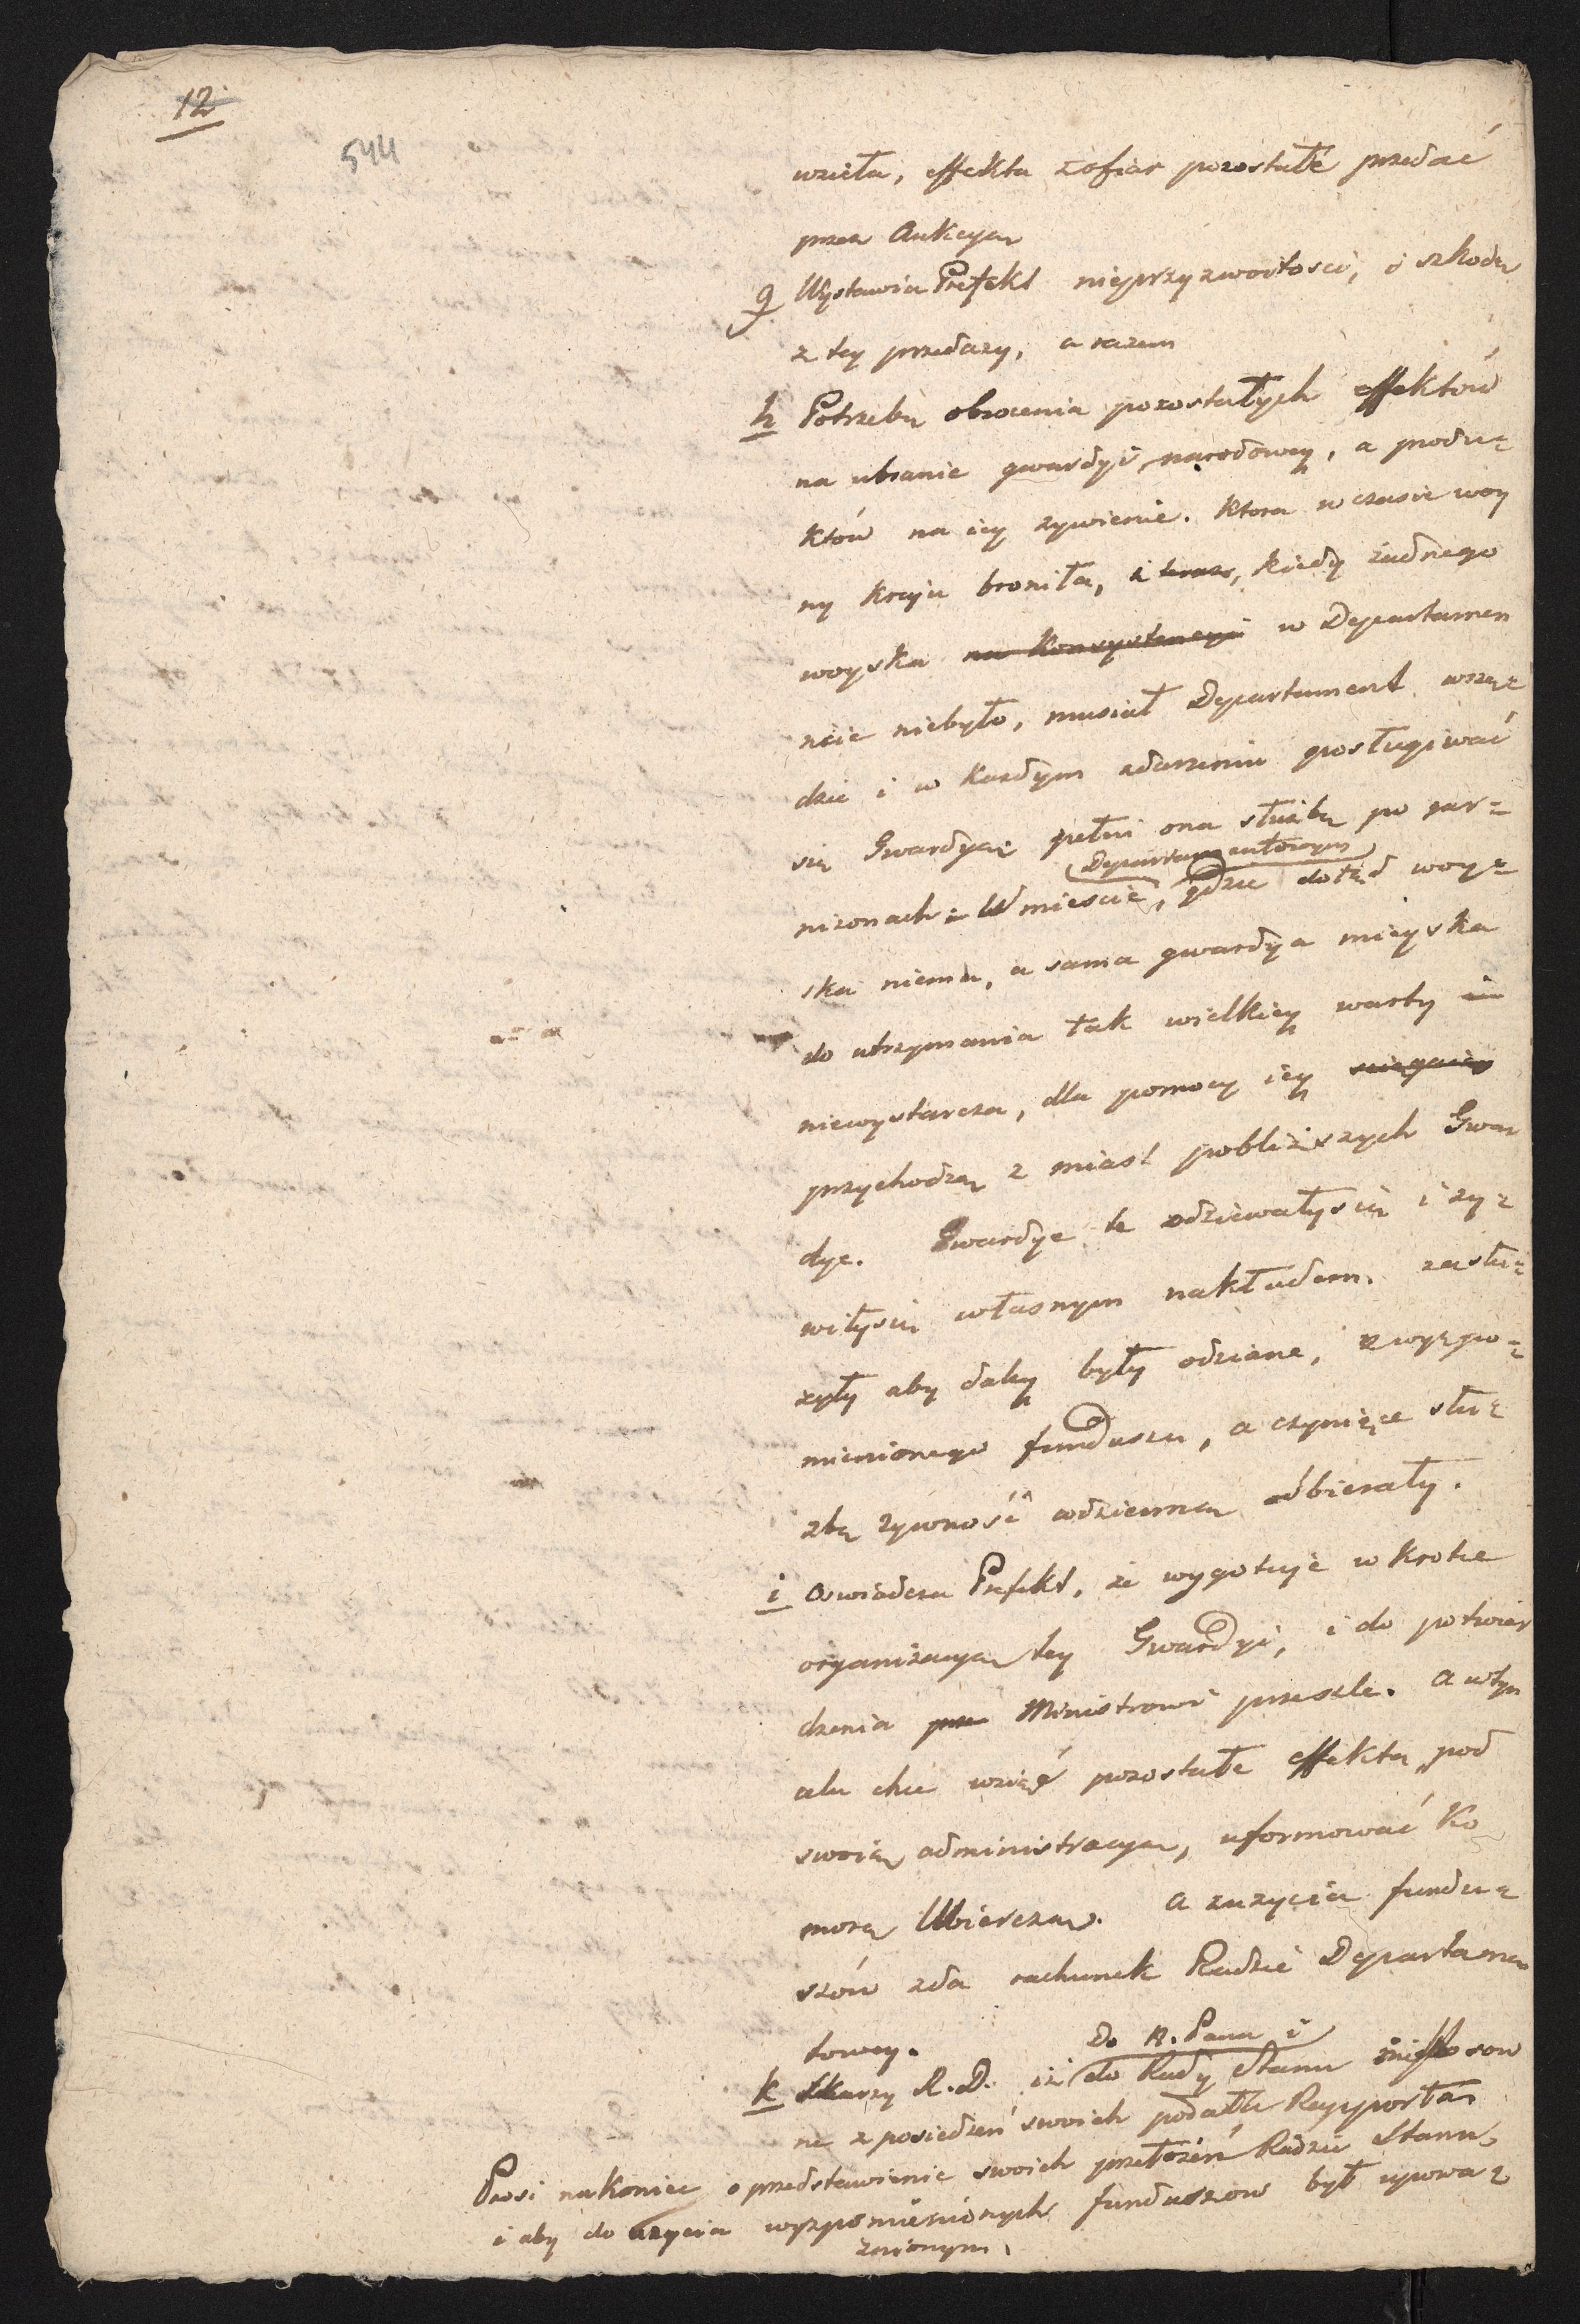 12
544
wzieła, effekta z ofiar pozostałe przedać
przez Aukcyą
g Wystawia Prefekt nieprzyzwoitosci, i szkodę
z tey przedazy, a razem
h Potrzebę obrocenia pozostałych effektów
na ubranie gwardyi narodowey, a produ=
któw na iey zywienie. Ktora w czasie woy
ny kraju broniła, i teraz, kiedy żadnego
woyska na Konsystencyi w Departamen
cie niebyło, musiał Departament wszę=
dzie i w każdym zdarzeniu posługiwać
się Gwardyą: pełni ona służbę po gar=
nizonach i W miescie, gdzie dotąd woy=
Departamentowym
ska niema, a sama gwardya mieyska
do utrzymania tak wielkiey warty
niewystarcza, dla pomocy iey
przychodzą z miast pobliższych Gwar
dye. Gwardye te odziewały się i zy=
wiły się własnym nakładem. zasłu=
zyły aby daley były odziane, z wyżpo=
mienionego funduszu, a czyniące słu=
zbę zywność codzienną odbierały.
i Oswiadcza Prefekt, że wygotuje w krotce
organizacyą tey Gwardyi, i do potwier
dzenia prze Ministrowi przeszle. a w tym
celu chce wziąć pozostałe effekta pod
swoię administracyą, uformować Ko
morę Ubierczą. a z uzycia fundu=
szów zda rachunek Radzie Departamen
towey.
Do N. Pana i
k Skarzy R. D. iż do Rady Stanu niestosow
ne z posiedzeń swoich podała Rapporta
Prosi nakoniec o przedstawienie swoich przełożeń Radzie Stanu,
i aby do uzycia wyzpomienionych funduszow był upowa=
żnionym.